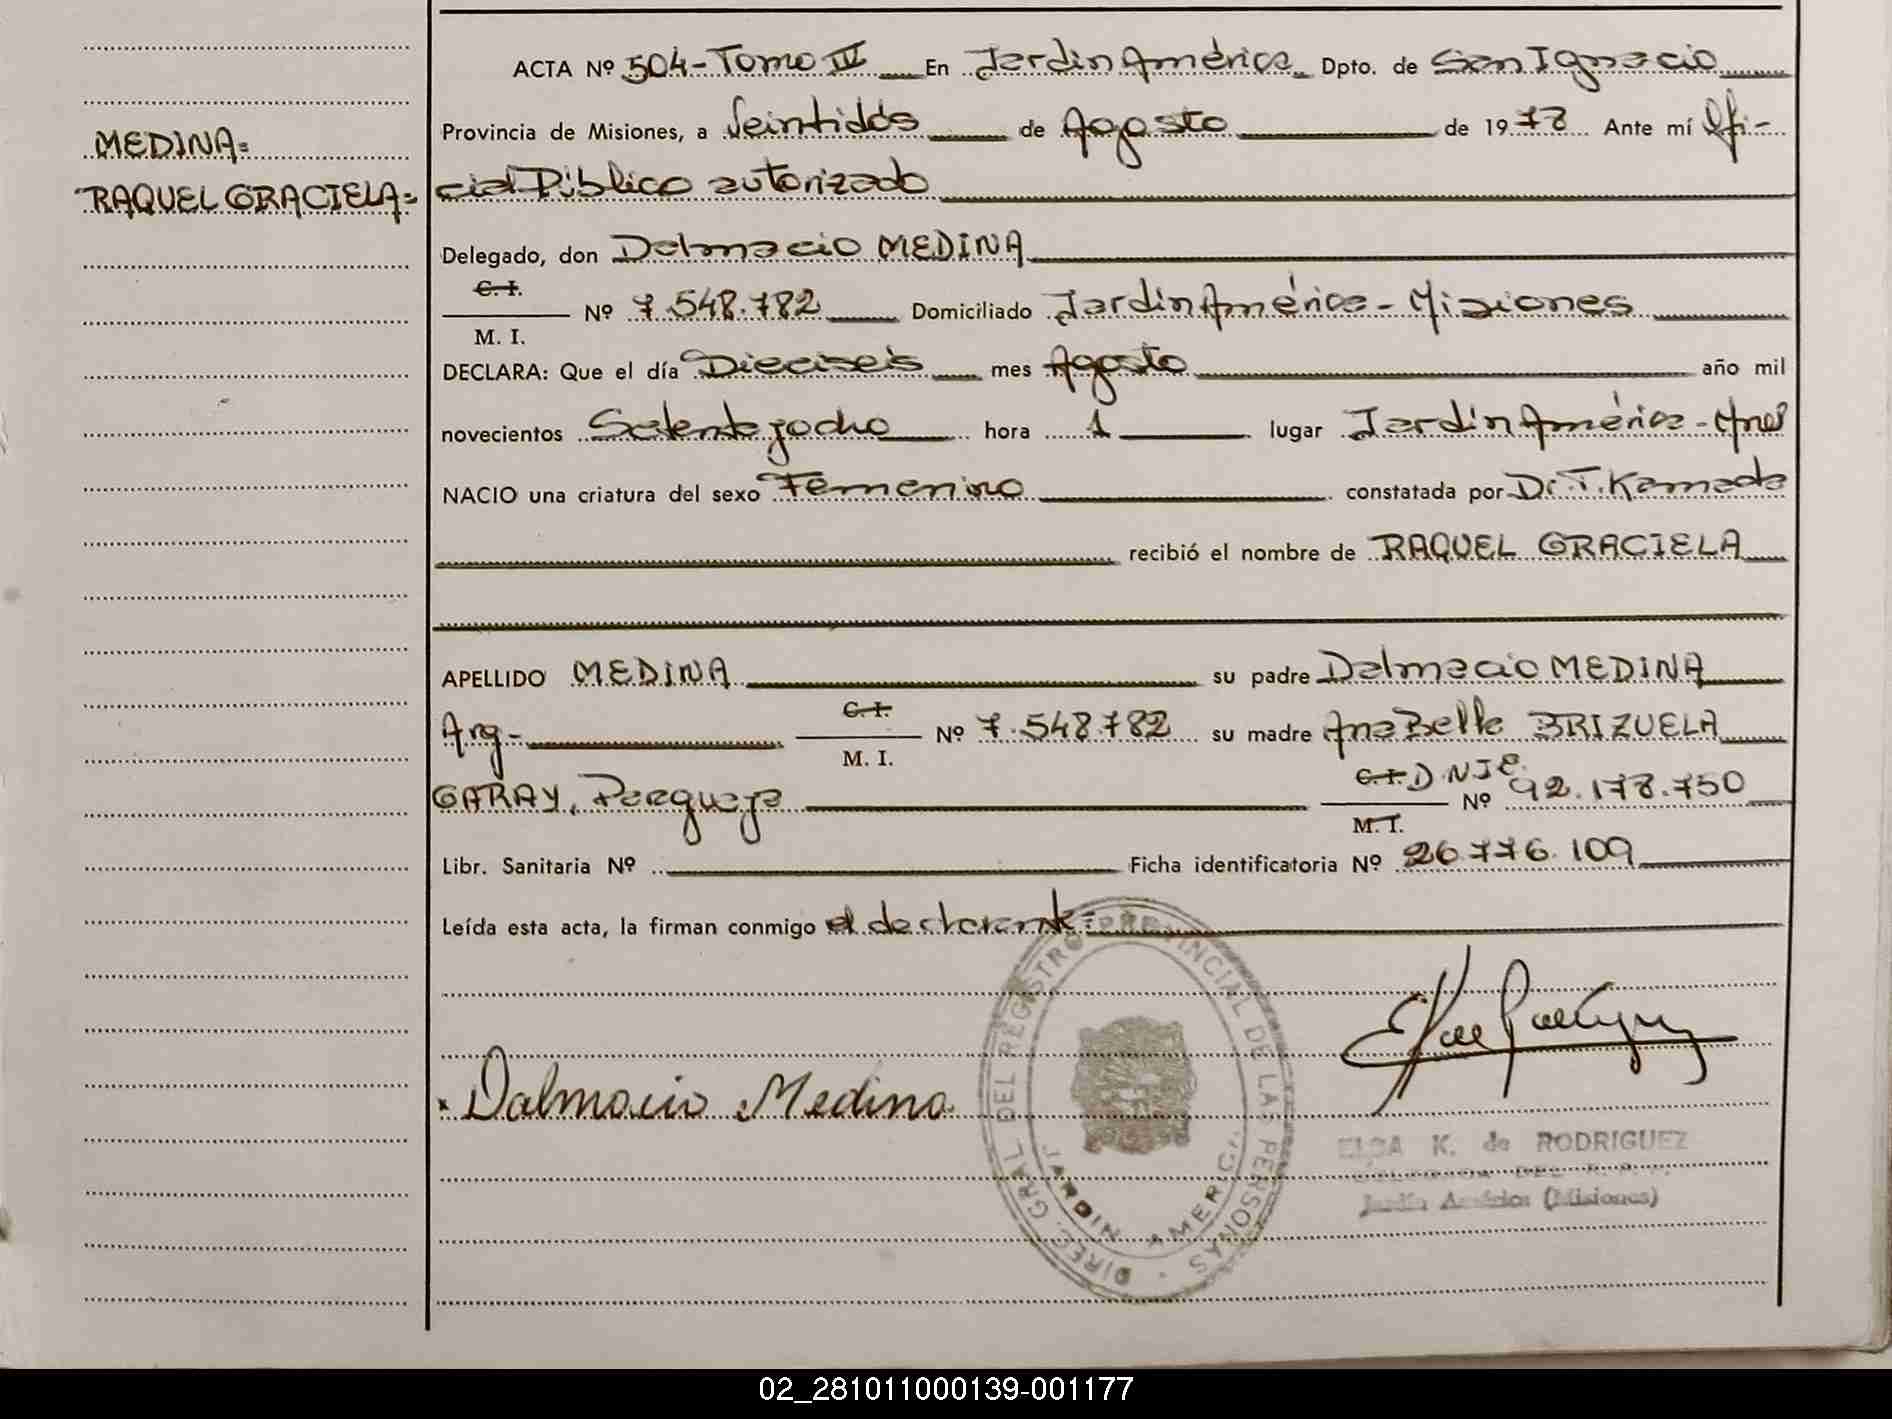 ACTA Nº 504 - Tomo III En Jardín América Dpto. de San Ignacio
Provincia de Misiones, a Veintidós de Agosto de 1978 Ante mí Ofi-
MEDINA=
RAQUEL GRACIELA=
cial Público autorizado
Delegado, don Dalmacio MEDINA
C. I.
M. I.
Nº 7.548.782 Domiciliado Jardín América - Misiones
DECLARA: Que el día Dieciseis mes Agosto año mil
novecientos Setenta y ocho hora 1 lugar Jardín América - Mnes
NACIO una criatura del sexo Femenino constatada por Dr. T. Kamada
recibió el nombre de RAQUEL GRACIELA
APELLIDO MEDINA su padre Dalmacio MEDINA
Arg- C. I. M. I. Nº 7.548.782 su madre Ana Belle BRIZUELA
GARAY, Paraguaya C. I. M. I. Nº 92.178.750
Libr. Sanitaria Nº Ficha identificatoria Nº 26.776.109
Leída esta acta, la firman conmigo el declarante=
Dalmacio Medina
DIREC. GRAL DEL REGISTRO PROVINCIAL DE LAS PERSONAS
JARDIN AMERICA
ELSA K. de RODRIGUEZ
Jardín América (Misiones)
02_281011000139-001177